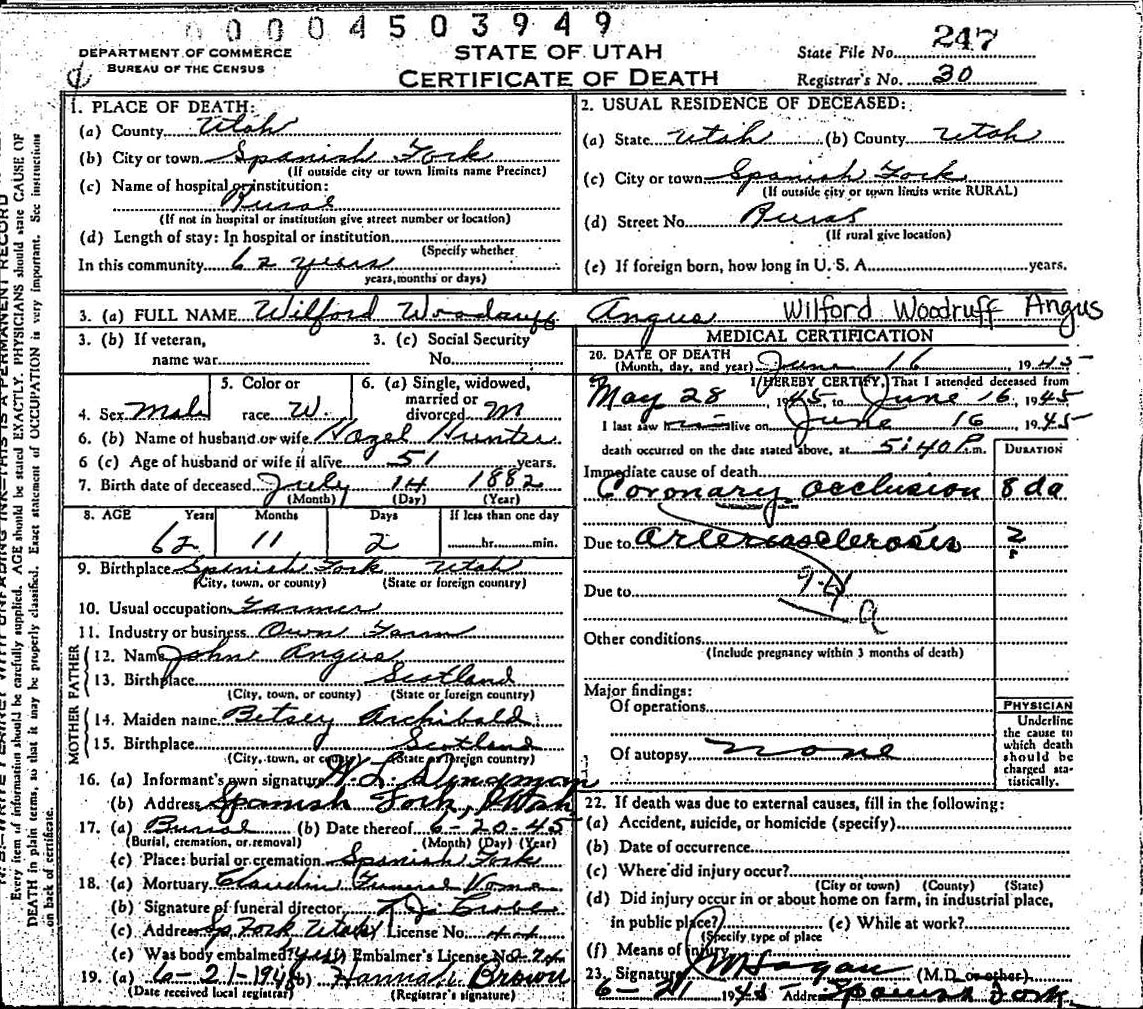 00004503949
DEPARTMENT OF COMMERCE
BUREAU OF THE CENSUS
STATE OF UTAH
CERTIFICATE OF DEATH
State File No. 247
Registrar's No. 30
1. PLACE OF DEATH:
(a) County Utah
(b) City or town Spanish Fork
(If outside city or town limits name Precinct)
(c) Name of hospital or institution:
Rural
(If not in hospital or institution give street number or location)
(d) Length of stay: In hospital or institution
(Specify whether
In this community 62 years
years, months or days)
2. USUAL RESIDENCE OF DECEASED:
(a) State Utah (b) County Utah
(c) City or town Spanish Fork
(If outside city or town limits write RURAL)
(d) Street No. Rural
(If rural give location)
(e) If foreign born, how long in U. S. A. years.
3. (a) FULL NAME Wilford Woodruff Angus Wilford Woodruff Angus
3. (b) If veteran, name war
3. (c) Social Security No.
4. Sex Male
5. Color or race W.
6. (a) Single, widowed, married or divorced M
6. (b) Name of husband or wife Hazel Hunter
6 (c) Age of husband or wife if alive 51 years.
7. Birth date of deceased July 14 1882
(Month) (Day) (Year)
8. AGE Years Months Days If less than one day
62 11 2 hr. min.
9. Birthplace Spanish Fork Utah
(City, town, or county) (State or foreign country)
10. Usual occupation Farmer
11. Industry or business Own Farm
FATHER
12. Name John Angus
13. Birthplace Scotland
(City, town, or county) (State or foreign country)
MOTHER
14. Maiden name Betsey Archibald
15. Birthplace Scotland
(City, town, or county) (State or foreign country)
16. (a) Informant's own signature W. L. Dingman
(b) Address Spanish Fork, Utah
17. (a) Burial (b) Date thereof 6-20-45
(Burial, cremation, or removal) (Month) (Day) (Year)
(c) Place: burial or cremation Spanish Fork
18. (a) Mortuary Claudin Funeral Home
(b) Signature of funeral director
(c) Address Sp. Fork Utah License No.
(e) Was body embalmed? yes Embalmer's License No.
19. (a) 6-21-1945 (b) Hannah Brown
(Date received local registrar) (Registrar's signature)
MEDICAL CERTIFICATION
20. DATE OF DEATH
(Month, day, and year) June 16, 1945
I HEREBY CERTIFY, That I attended deceased from
May 28, 1945, to June 16, 1945
I last saw him alive on June 16 1945
death occurred on the date stated above, at 5:40 P.m.
DURATION
Immediate cause of death
Coronary occlusion 8 da
Due to Arteriosclerosis ?
Due to
94 a
Other conditions
(Include pregnancy within 3 months of death)
Major findings:
Of operations
Of autopsy none
PHYSICIAN
Underline
the cause to
which death
should be
charged sta-
tistically.
22. If death was due to external causes, fill in the following:
(a) Accident, suicide, or homicide (specify)
(b) Date of occurrence
(c) Where did injury occur?
(City or town) (County) (State)
(d) Did injury occur in or about home on farm, in industrial place,
in public place? (e) While at work?
(Specify type of place
(f) Means of injury
23. Signature (M.D. or other)
6-21 1945 Address Spanish Fork
Every item of information should be carefully supplied. AGE should be stated EXACTLY. PHYSICIANS should state CAUSE OF
DEATH in plain terms, so that it may be properly classified. Exact statement of OCCUPATION is very important. See instructions
on back of certificate.